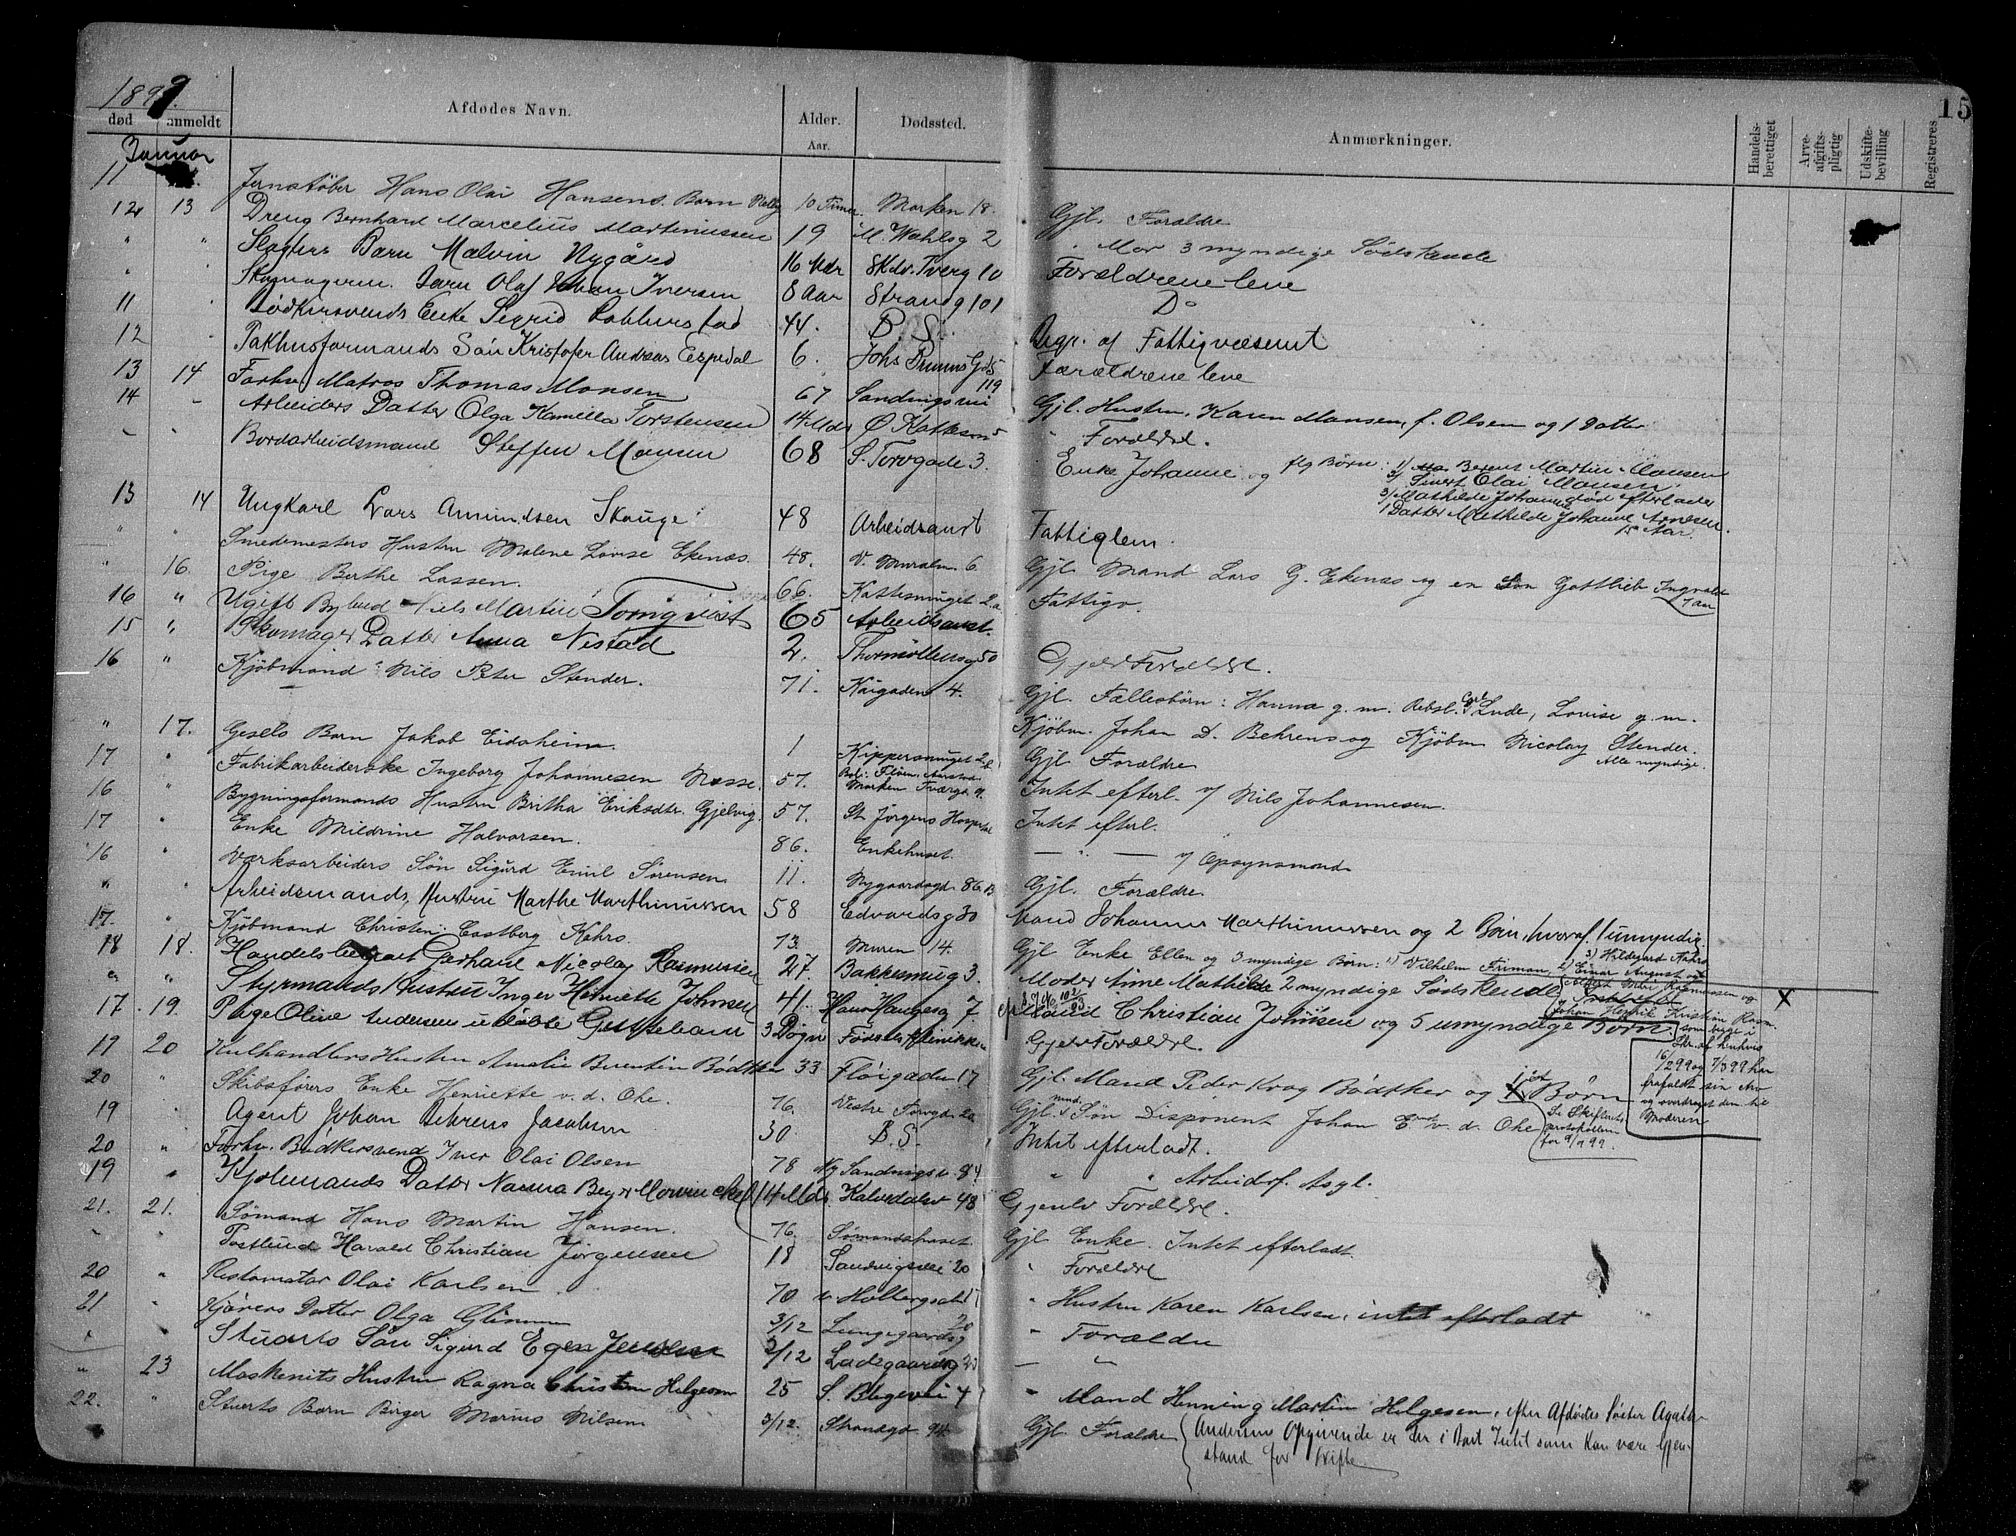 15
1899.
død anmeldt Afdødes Navn. Alder. Aar. Dødssted. Anmærkninger. Handelsberettiget Arveafgiftspligtig Udskiftebevilling Registreres
Januar
11 Jernstøber Hans Olai Hansens Barn 10 Timer. Marken 18. Gjl. Forældre
12 13 Dreng Bernhard Marcelius Martinussen 19 M. Wahlsg 2 " Mor 3 myndige Sødskende
" " Slagters Barn Malvin Nygård 16 Mdr Skdv. Tverg 10 Forældrene leve
" " Skomagerm. Barn Olaf Johan Iversen 8 Aar Strandg 101 Do
11 " Bødkersvends Enke Sigrid 44. B. S. Begr. af Fattigvæsenet
12 Pakhusformands Søn Kristofer Andreas Espedal 6. Johs Bruuns Gd 5 Forældrene leve
13 14 Forhv. Matros Thomas Monsen 67 Sandvigsvei 119 Gjl. Hustru, Karen Monsen, f. Olsen og 1 Datter
14 - Arbeiders Datter Olga Kamilla Torstensen 14 Mdr Ø Kattesm 5 " Forældre.
- - Bordarbeidsmand Steffen Monsen 68 S. Torvgade 3. Enke Johanne og flg Børn: 1) Berent Martin Monsen
2) Sivert Olai Monsen
3) Mathilde Johanne død efterlader
1 Datter Mathilde Johanne Arnesen
15 Aar.
13 14 Ungkarl Lars Amundsen Skauge 48 Arbeidsanst Fattiglem.
" " Smedemesters Hustru Malene Lovise Ekenæs. 48. V. Muralm 6. Gjl Mand Lars G. Ekenæs og en Søn Gottlieb Ingvald
7 aar
" 16. Pige Berthe Lassen. 66. Kattesmuget 2a Fattigv.
16 " Ugift Bylud Niels Martin Tornqvist 65 Arbeidsanst.
15 " Skomager Datter Anna Nestad 2. Thormøllensg 50 Gjenlv Forældre.
16 " Kjøbmand Nils Peter Stender. 71. Kaigaden 4. Gjl. Fællesbørn: Hanna g. m. Rebsl. Lude, Lovise g. m.
Kjøbm. Johan D. Behrens og Kjøbm Nicolay Stender.
Alle myndige.
" 17. Gesels Barn Jakob Eidsheim 1 Kippersmuget 2 Gjl Forældre
17 " Fabrikarbeiderske Ingeborg Johannesen Næsse. 57. Marken Tværg 9. Intet efterl. v/ Nils Johannesen.
16 " Bygningsformands Hustru Britha Eriksdtr. Gjelvig. 57. St Jørgens Hospital Intet efterl.
17 " Enke Mildrine Halvorsen. 86. Enkehuset. — " — v/ Opsynsmand
16 " Værksarbeiders Søn Sigurd Emil Sørensen 11. Nygaardsgd 86 B Gjl. Forældre
" " Arbeidsmands Hustru Marthe Marthinussen 58 Edvardsg 30 Mand Johannes Marthinussen og 2 Børn, hvoraf 1 umyndig
17. " Kjøbmand Christen Castberg Kahrs. 73. Muren 14. Gjl Enke Ellen og 3 myndige Børn: 1) Vilhelm Friman, 2) Einar August og 3) Hildegard Kahrs
18 18. Handelsbetjent Gerhard Nicolay Rasmussen 27. Bakkesmug 3. Moder Anne Mathilde 2 myndige Sødskende
" " Styrmands Hustru Inger Henriette Johnsen 41. Hans Haugesg 7 Mand Christian Johnsen og 5 umyndige Børn. X
17 19. Pige Olive Andersen udøbte Guttebarn 3 Døgn Fødselsklinikken Gjenlv Forældre.
19 20 Kulhandlers Hustru Amalie Berentin Bødtker 33 Fløigaden 17 Gjl. Mand Peder Krog Bødtker og 1 Børn
20 " Skibsførers Enke Henriette v. d. Ohe. 76. Vestre Torvgd 20 Gjl. mynd. Søn Disponent Johan E v. d. Ohe
Se Skifterets
protokollen
for 9/9 99.
16/2 99 og 7/3 99 har
frafaldt sin Arv
og overdraget den til
Moderen
19 " Agent Johan Behrens Jacobsen 30 B. S. Intet efterladt.
20 " Forhv. Bødkersvend Iver Olai Olsen 78 Ny Sandvigsv. 84 " " Arbeiderf. Asyl.
19 " Kjøbmands Datter Nanna Beyer Mowinckel 14 Mdr. Kalvedalsv 48 Gjenlv Forældre.
21. 21. Sømand Hans Martin Hansen. 76. Sømandshuset. Gjl. Enke. Intet efterladt.
- " Postbud Harald Christian Jørgensen 18 Sandvigsvei 20 " Forældre
20 " Restauratør Olai Karlsen 70 v. Holbergsalm " Hustru Karen Karlsen, intet efterladt
21 " Kjørers Datter Olga 3/12 Lungegaardsg 20 " Forældre
" " Stuerts Søn Sigurd Egen Jensen 3/12 Ladegaardsg — "
" 23 Maskinists Hustru Ragna Christine Helgesen 25 S. Blegevei 4 " Mand Henning Martin Helgesen, efter Afdødes Søster Agathe
Andersens Opgivende er der i Boet Intet som kan være Gjenstand
for Skifte
22. " Stuerts Barn Birger Marius Nilsen 3/12. Strandgd 94. Gjl. Forældre